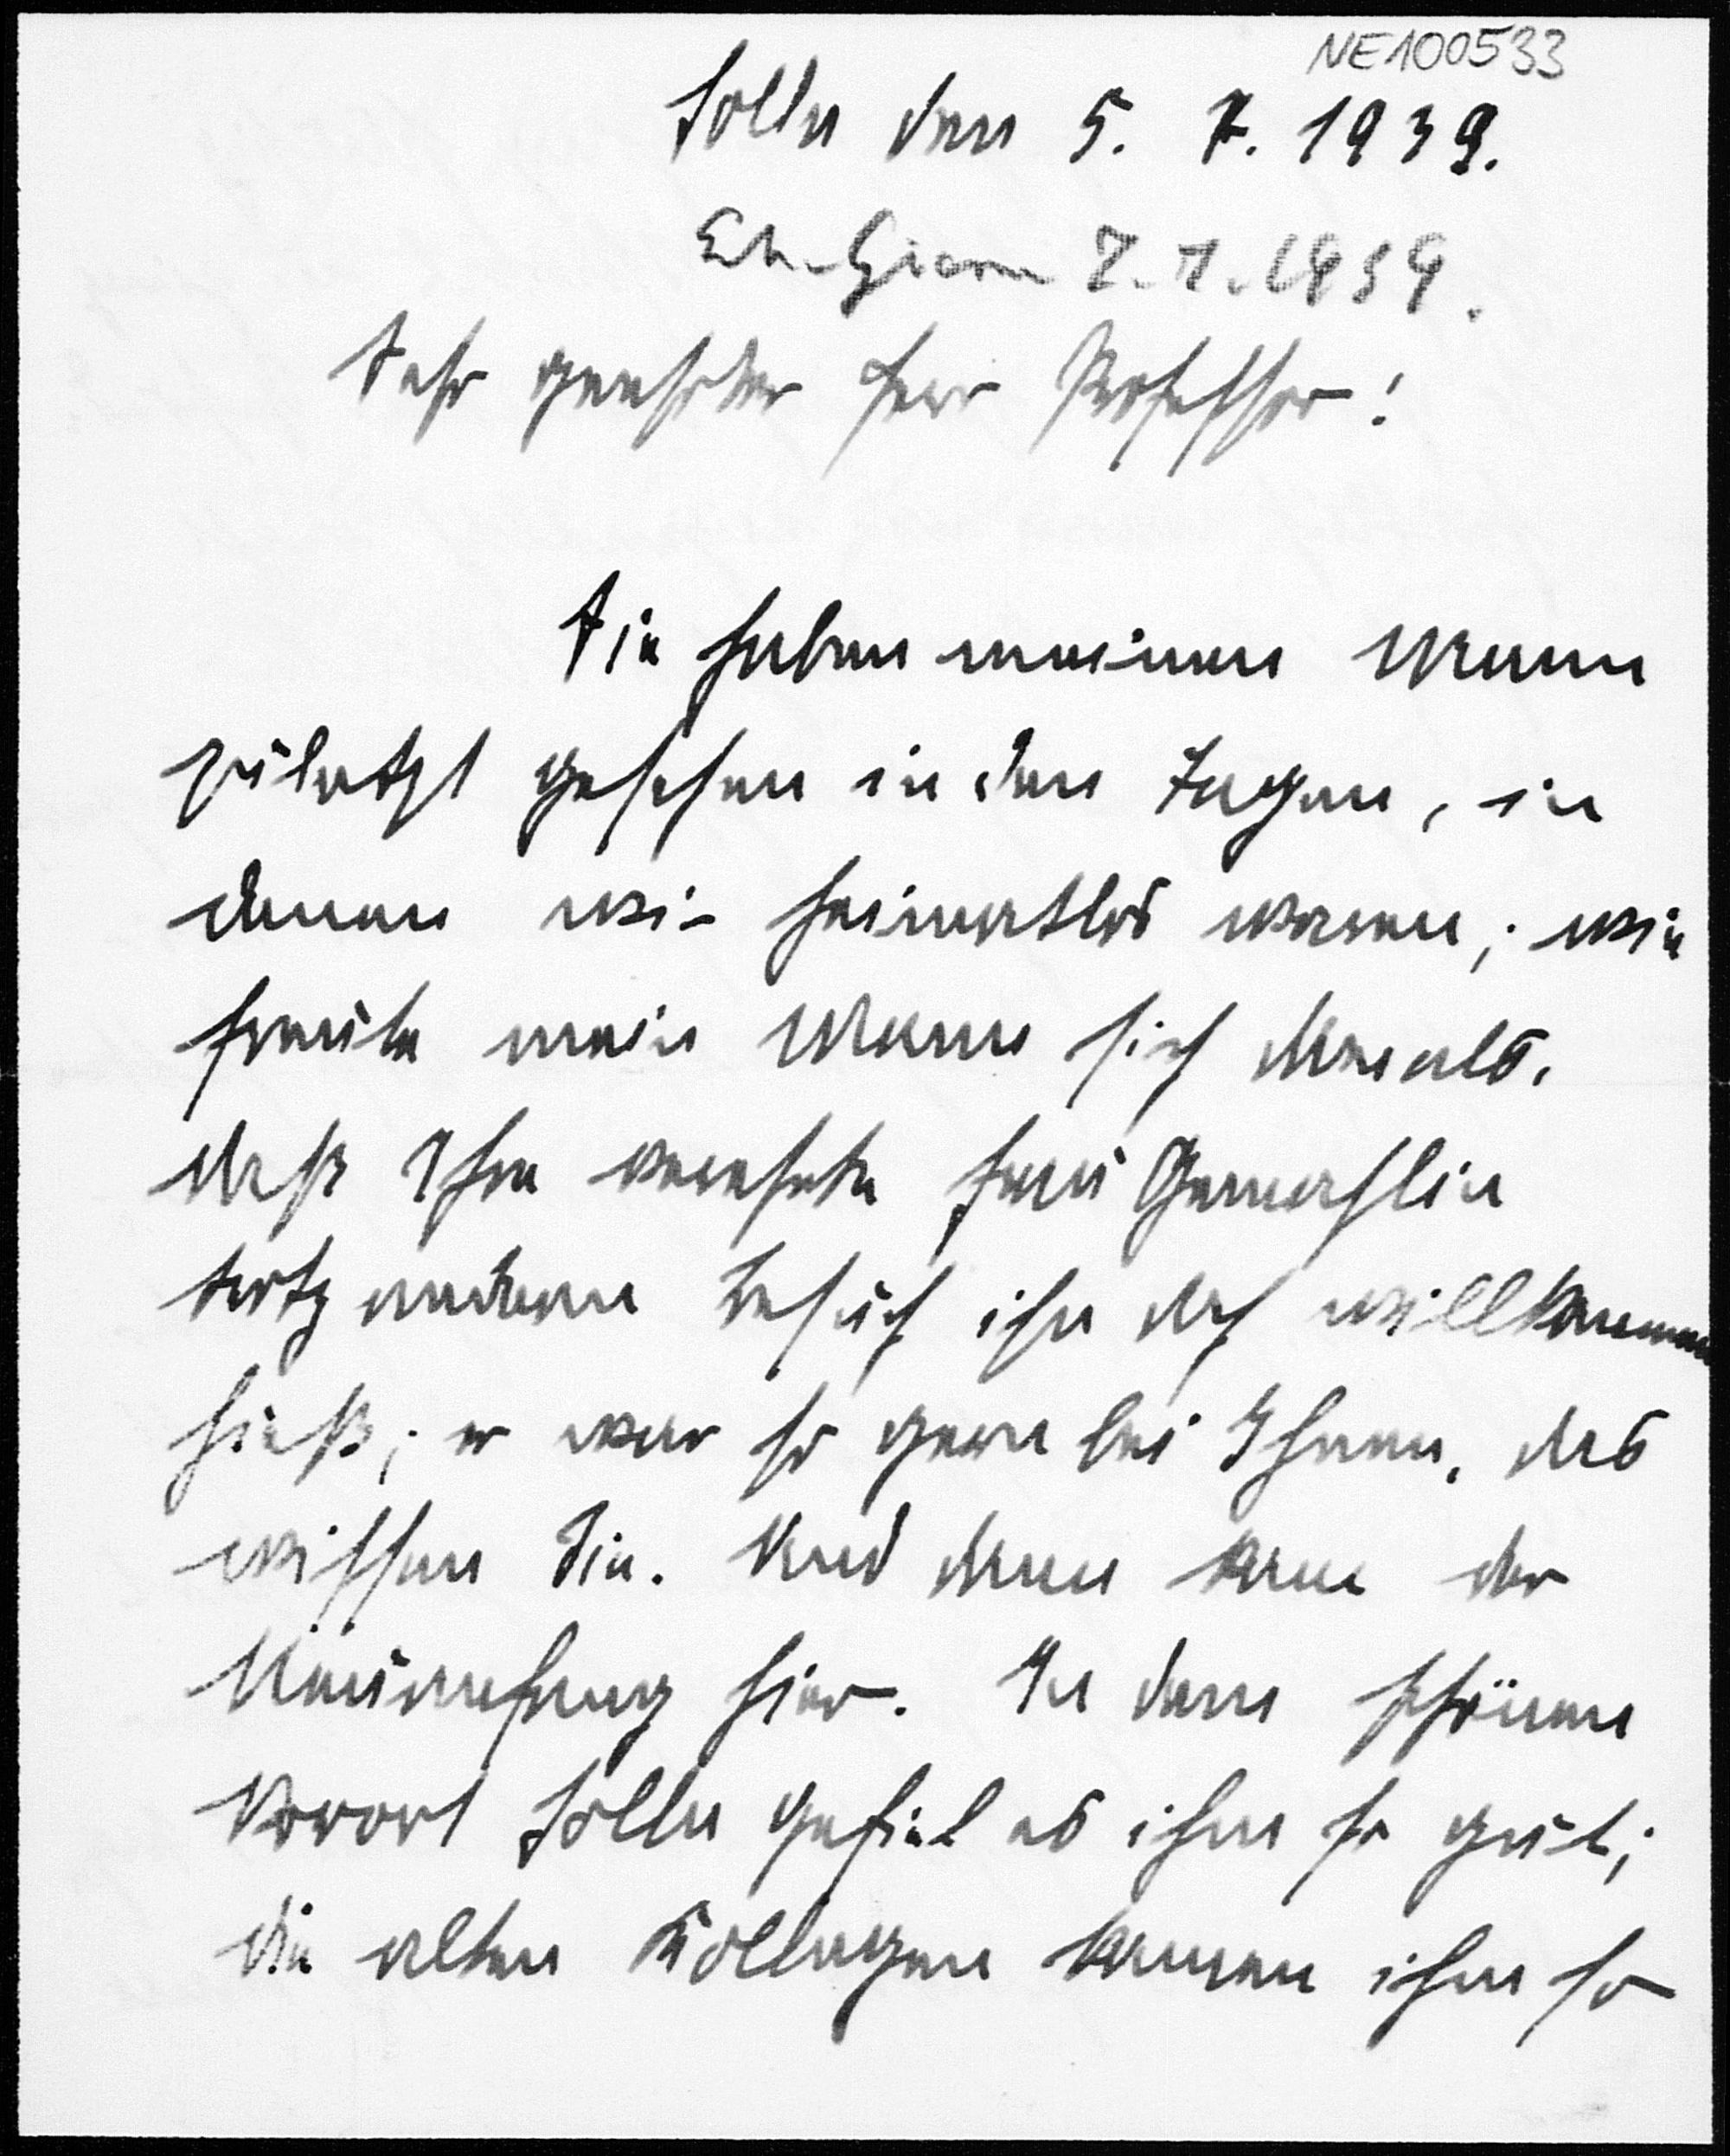 NE100533
Solln den 5. 7. 1939.
7. 7. 1939.
Sehr geehrter Herr Professor!
Sie haben meinen Mann
zuletzt gesehen in den Tagen, in
denen wir heimatlos waren; wie
freute mein Mann sich damals,
daß Ihre verehrte Frau Gemahlin
trotz anderem Besuch ihn doch willkommen
hieß; er war so gern bei Ihnen, das
wissen Sie. Und dann kam der
Neuanfang hier. In dem schönen
Vorort Solln gefiel es ihm so gut;
die alten Kollegen kamen ihm so